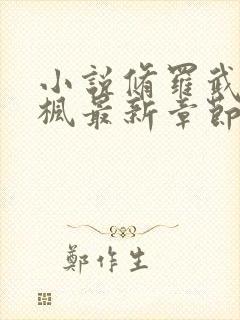 小說脩羅武
楓最新章節
鄭作生